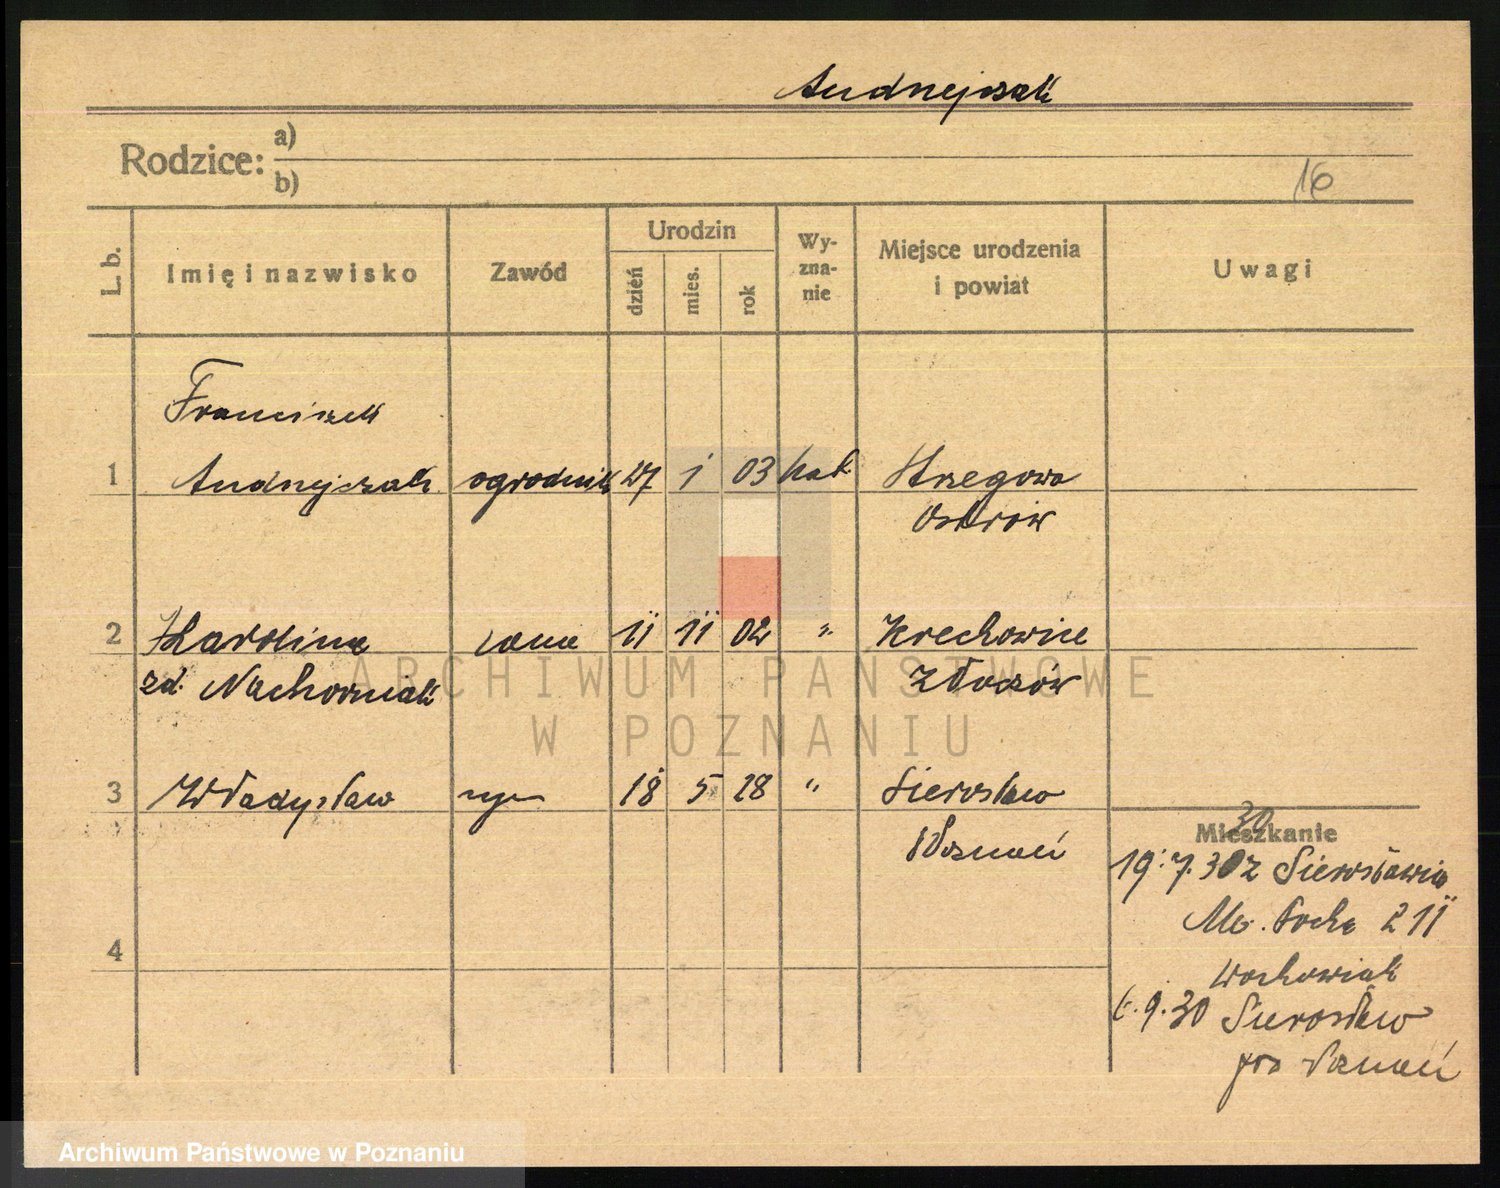 Andrzejczak
Rodzice: a)
b)
16
L. b.
Imię i nazwisko
Zawód
Urodzin
dzień
mies.
rok
Wy-
zna-
nie
Miejsce urodzenia
i powiat
Uwagi
Franciszek
1 Andrzejczak ogrodnik 27 1 03 kat. Strzegowa
Ostrów
2 Karolina żona 11 11 02 " Krechowice
zd. Nachorniak Złoczów
3 Władysław syn 18 5 28 " Sierosław
Poznań
4
30
Mieszkanie
19.7.30 z Sierosławia
Młr. Focha 211
Wochowiak
6.9.30 Sierosław
pow Poznań
ARCHIWUM PAŃSTWOWE
W POZNANIU
Archiwum Państwowe w Poznaniu